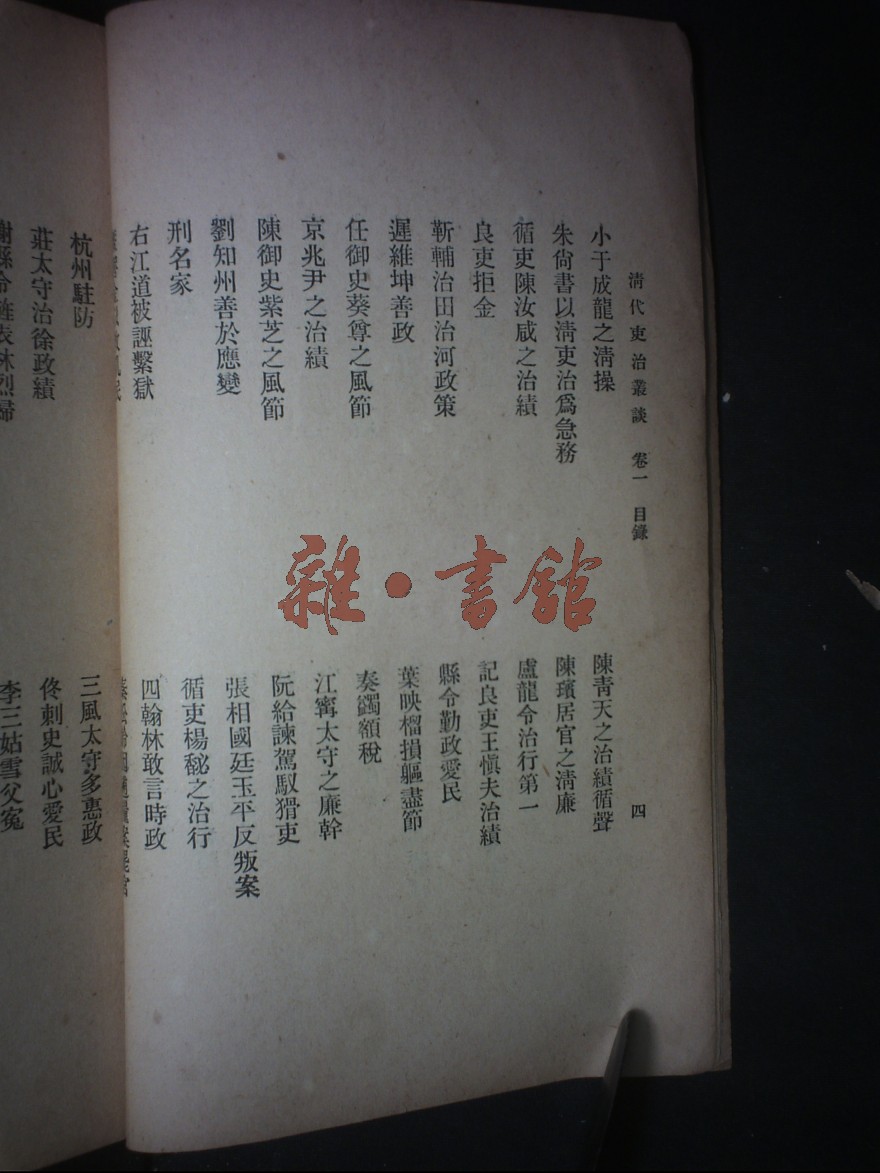 清代吏治叢談 卷一 目錄 四
小于成龍之清操
朱尙書以淸吏治爲急務
循吏陳汝咸之治績
良吏拒金
靳輔治田治河政策
遲維坤善政
任御史葵尊之風節
京兆尹之治績
陳御史紫芝之風節
劉知州善於應變
刑名家
右江道被誣繫獄
陳靑天之治績循聲
陳璸居官之淸廉
盧龍令治行第一
記良吏王愼夫治績
縣令勤政愛民
葉映榴損軀盡節
奏蠲額稅
江寗太守之廉幹
阮給諫駕馭猾吏
張相國廷玉平反叛案
循吏楊馝之治行
四翰林敢言時政
杭州駐防
莊太守治徐政績
謝縣令雖表林烈婦
三風太守多惠政
佟刺史誠心愛民
李三姑雪父寃
雜·書館